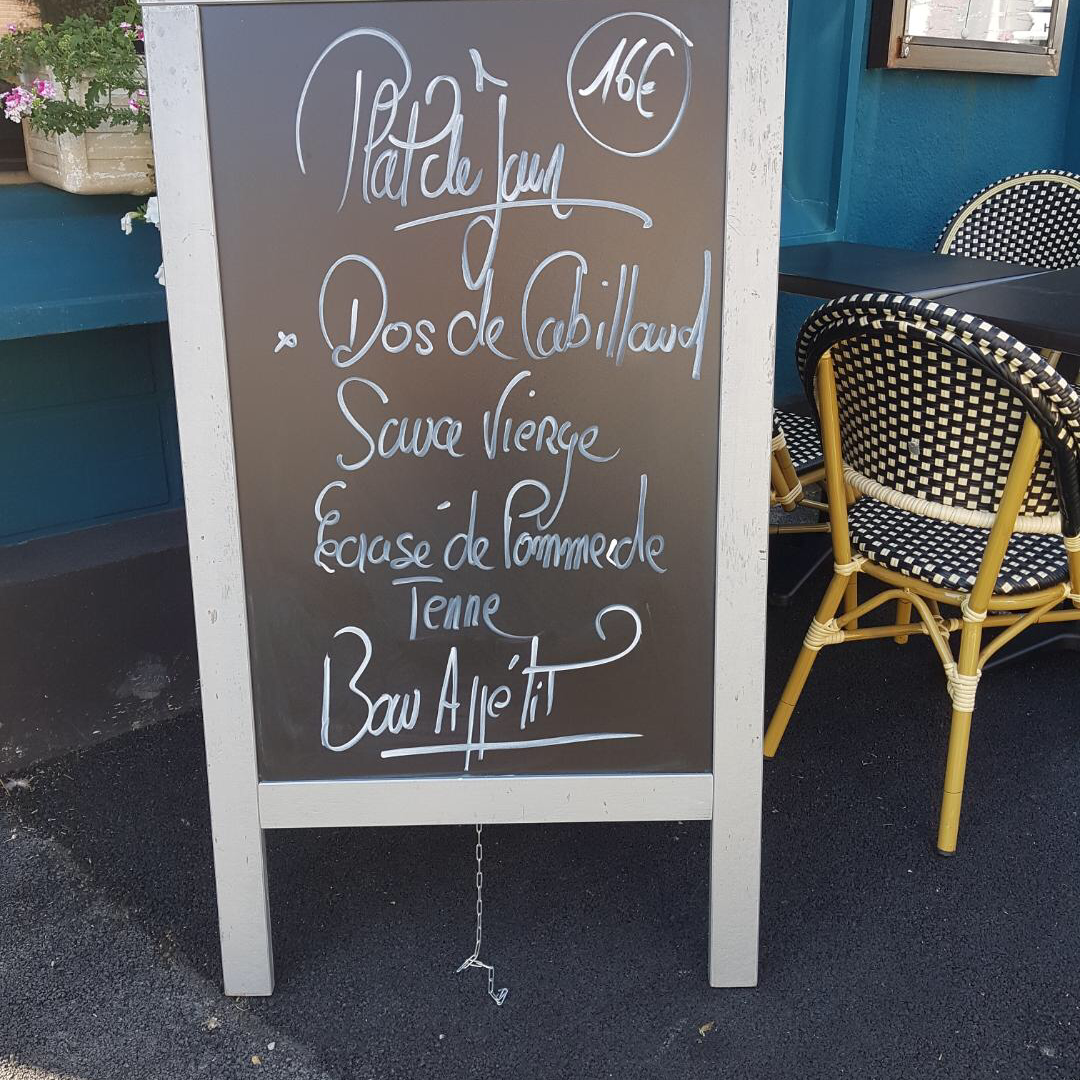 Plat de jour
16€
x Dos de Cabillaud
Sauce Vierge
Ecrasé de Pomme de
Terre
Bon Appétit